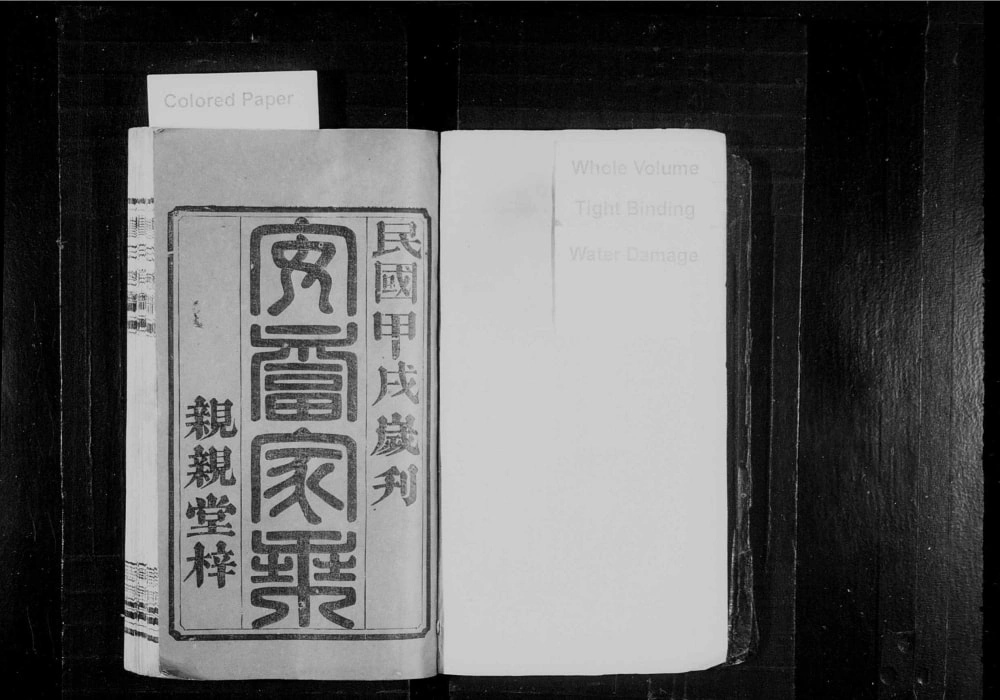 民國甲戌歲刋
安家乘
親親堂梓
Colored Paper
Whole Volume
Tight Binding
Water Damage